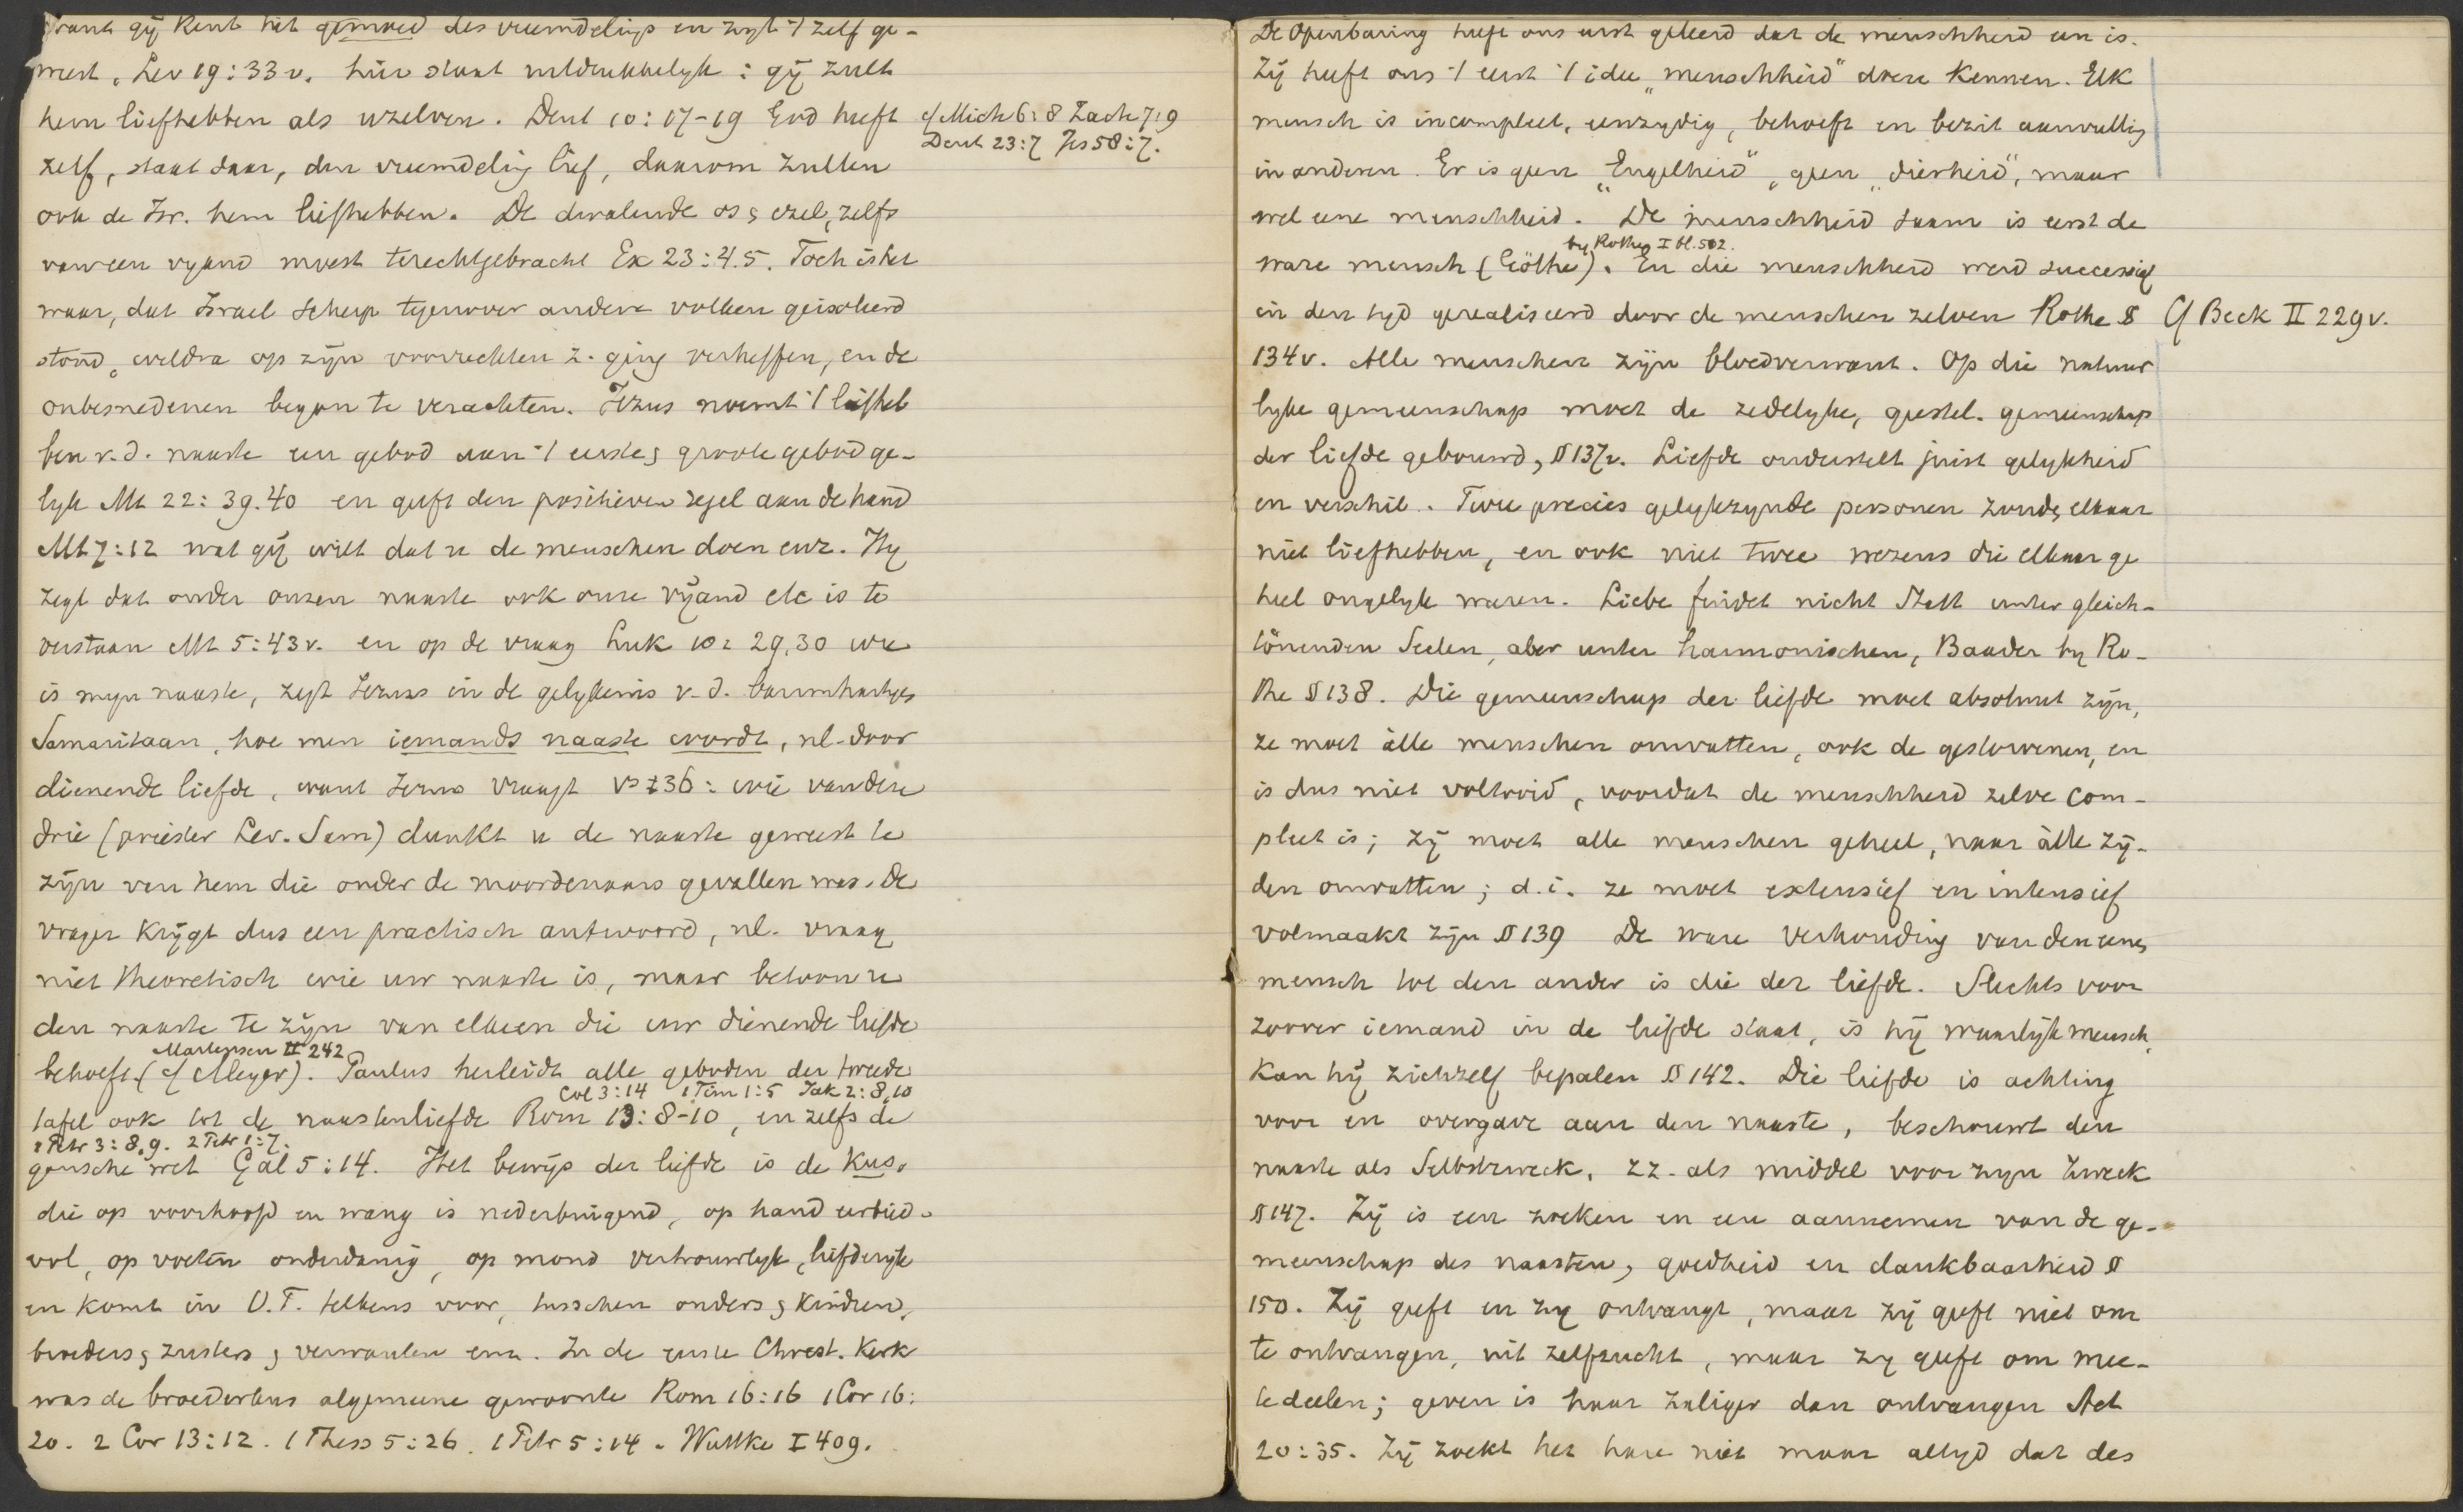 want gij kent het gemoed des vreemdelings en zijt 't zelf ge-
weest. Lev 19:33v. hier staat uitdrukkelijk: gij zult
hem liefhebben als uzelven. Deut 10:17-19 God heeft
cf Mich 6:8 Zach 7:9
Deut 23:7 Jes 58:7.
zelf, staat daar, den vreemdeling lief, daarom zullen
ook de Isr. hem liefhebben. De dwalende os & ezel, zelfs
van een vyand moest terechtgebracht Ex 23:4.5. Toch is het
waar, dat Israel scherp tegenover andere volken geisoleerd
stond, weldra op zijn voorrechten z. ging verheffen, en de
onbesnedenen began te verachten. Jezus noemt 't liefheb
ben v.d. naaste een gebod aan 't eerste & groote gebod ge-
lyk Mt 22:39.40 en geeft den positieven regel aan de hand
Mt 7:12 wat gij wilt dat u de menschen doen enz. Hy
zegt dat onder onzen naaste ook onze vijand etc is te
verstaan Mt 5:43v. en op de vraag Luk 10:29,30 wie
is myn naaste, zegt Jezus in de gelykenis v.d. barmhartigen
Samaritaan, hoe men iemands naaste wordt, nl. door
dienende liefde, want Jezus vraagt vs 36: wie van deze
drie (priester Lev. Sam) dunkt u de naaste geweest te
zijn van hem die onder de moordenaars gevallen was. De
vrager krijgt dus een practisch antwoord, nl. vraag
niet theoretisch wie uw naaste is, maar betoon u
den naaste te zijn van elkeen die uw dienende liefde
Martensen II 242
behoeft. (cf Meyer). Paulus herleidt alle geboden der tweede
Col 3:14 1 Tim 1:5 Jak 2:8,10
tafel ook tot de naastenliefde Rom 13:8-10, en zelfs de
1 Petr 3:8,9. 2 Petr 1:7.
gansche wet Gal 5:14. Het bewijs der liefde is de kus,
die op voorhoofd en wang is nederbuigend, op hand eerbied-
vol, op voeten onderdanig, op mond vertrouwelyk, liefderijk
en komt in O.T. telkens voor, tusschen ouders & kinderen,
broeders & zusters & verwanten enz. In de eerste Christ. Kerk
was de broederkus algemeene gewoonte Rom 16:16 1 Cor 16:
20. 2 Cor 13:12. 1 Thess 5:26. 1 Petr 5:14. Wuttke I 409.
De Openbaring heeft ons eerst geleerd dat de menschheid een is.
Zij heeft ons 't eerst 't idee "menschheid" doen kennen. Elk
mensch is incompleet, eenzydig, behoeft en bezit aanvulling
in anderen. Er is geen "Engelheid", geen "dierheid", maar
wel eene menschheid. De menschheid saam is eerst de
by Rothe I bl. 502.
ware mensch (Göthe). En die menschheid werd successief
in den tyd gerealiseerd door de menschen zelven Rothe §
Cf Beck II 229v.
134v. Alle menschen zijn bloedverwant. Op die natuur
lyke gemeenschap moet de zedelyke, geestel. gemeenschap
der liefde gebouwd, § 137v. Liefde onderstelt juist gelykheid
en verschil. Twee precies gelykzynde personen zouden elkaar
niet liefhebben, en ook niet twee wezens die elkaar ge
heel ongelyk waren. Liebe findet nicht Statt unter gleich-
tönenden Seelen, aber unter harmonischen, Baader by Ro-
the § 138. Die gemeenschap der liefde moet absoluut zijn,
ze moet àlle menschen omvatten, ook de gestorvenen, en
is dus niet voltooid, voordat de menschheid zelve com-
pleet is; zij moet alle menschen geheel, naar àlle zij-
den omvatten; d.i. ze moet extensief en intensief
volmaakt zijn § 139 De ware verhouding van den eenen
mensch tot den ander is die der liefde. Slechts voor
zoover iemand in de liefde staat, is hij waarlijk mensch,
kan hij zichzelf bepalen § 142. Die liefde is achting
voor en overgave aan den naaste, beschouwt den
naaste als Selbstzweck, zz. als middel voor zijn Zweck
§ 147. Zij is een zoeken en een aannemen van de ge-
meenschap des naasten, goedheid en dankbaarheid §
150. Zij geeft en zij ontvangt, maar zij geeft niet om
te ontvangen, uit zelfzucht, maar zy geeft om mee-
tedeelen; geven is haar zaliger dan ontvangen Act
20:35. Zij zoekt het hare niet maar altyd dat des